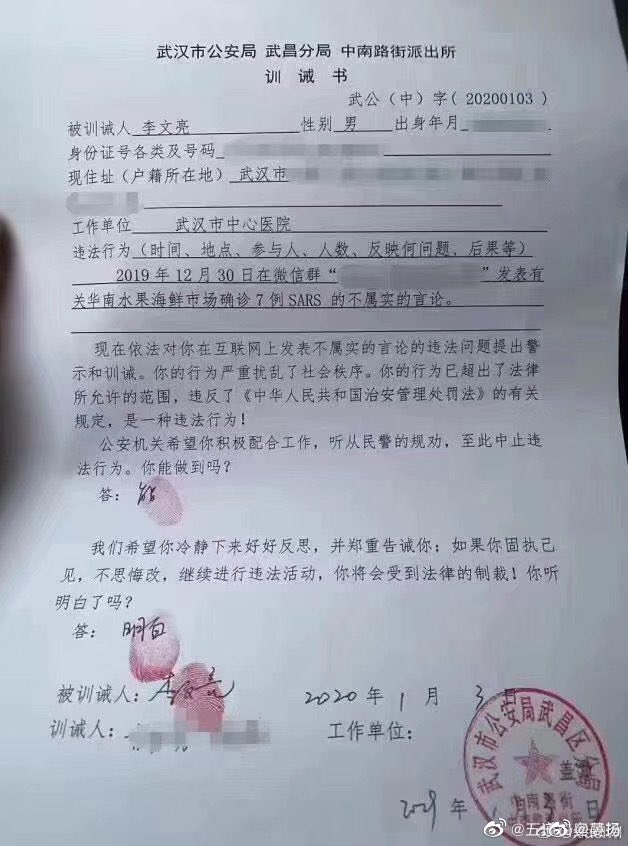 武汉市公安局 武昌分局 中南路街派出所
训 诫 书
武公（中）字（20200103）
被训诫人 李文亮 性别 男 出身年月
身份证号各类及号码
现住址（户籍所在地） 武汉市
工作单位 武汉市中心医院
违法行为（时间、地点、参与人、人数、反映何问题、后果等）
2019年12月30日在微信群“ ”发表有
关华南水果海鲜市场确诊7例SARS 的不属实的言论。
现在依法对你在互联网上发表不属实的言论的违法问题提出警
示和训诫。你的行为严重扰乱了社会秩序。你的行为已超出了法律
所允许的范围，违反了《中华人民共和国治安管理处罚法》的有关
规定，是一种违法行为！
公安机关希望你积极配合工作，听从民警的规劝，至此中止违
法行为。你能做到吗？
答：能
我们希望你冷静下来好好反思，并郑重告诫你：如果你固执己
见，不思悔改，继续进行违法活动，你将会受到法律的制裁！你听
明白了吗？
答：明白
被训诫人：李文亮 2020年1月3日
训诫人： 工作单位：
武汉市公安局武昌区分局
盖章
中南路街
年 月 日